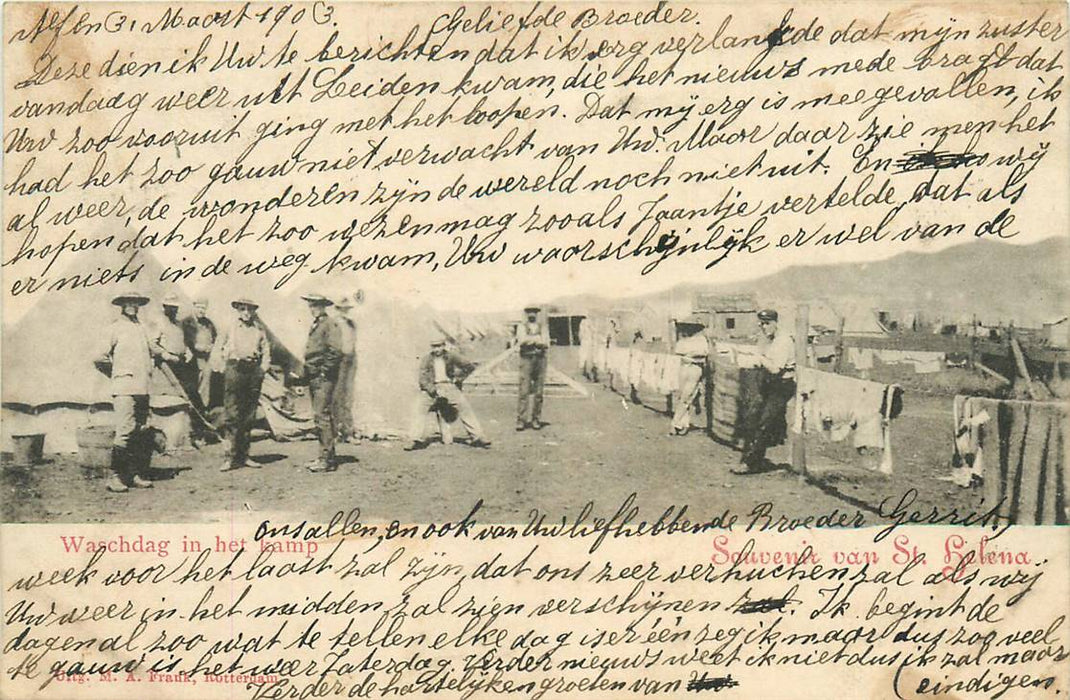 Alfen 31 Maart 1903. Geliefde Broeder.
Deze dien ik Uw te berichten dat ik erg verlangde dat mijn zuster
vandaag weer uit Leiden kwam, die het nieuws mede bragt dat
Uw zoo vooruit ging met het loopen. Dat mij erg is meegevallen, ik
had het zoo gauw niet verwacht van Uw. Maar daar zie men het
al weer, de wonderen zijn de wereld noch niet uit. En wij
hopen dat het zoo wezen mag zooals Jaantje vertelde, dat als
er niets in de weg kwam, Uw waarschijnlijk er wel van de
week voor het laast zal zijn, dat ons zeer verhuchen zal als wij
Uw weer in het midden zal zien verschijnen. Ik begint de
dagen al zoo wat te tellen elke dag is er één zeg ik maar dus zoo veel
te gauw is het weer Zaterdag. Verder nieuws weet ik niet dus ik zal maar
eindigen.
Verder de hartelijken groeten van
ons allen, en ook van Uw liefhebbende Broeder Gerrit.
Waschdag in het kamp
Souvenir van St. Helena.
Uitg. M. A. Frank, Rotterdam